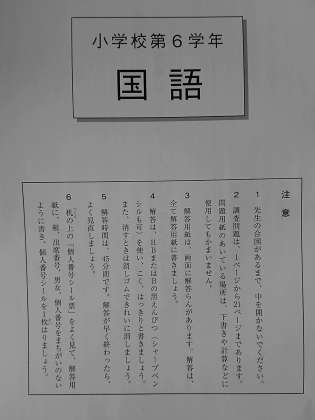 小学校第６学年
国語
注意
１　先生の合図があるまで、中を開かないでください。
２　調査問題は、１ページから21ページまであります。
問題用紙のあいている場所は、下書きや計算などに
使用してもかまいません。
３　解答用紙は、両面に解答らんがあります。解答は、
全て解答用紙に書きましょう。
４　解答は、ＨＢまたはＢの黒えんぴつ（シャープペン
シルも可）を使い、こく、はっきりと書きましょう。
また、消すときは消しゴムできれいに消しましょう。
５　解答時間は、45分間です。解答が早く終わったら、
よく見直しましょう。
６　机の上の「個人番号シール票」をよく見て、解答用
紙に、組、出席番号、男女、個人番号をまちがいのない
ように書き、個人番号シールを１枚はりましょう。